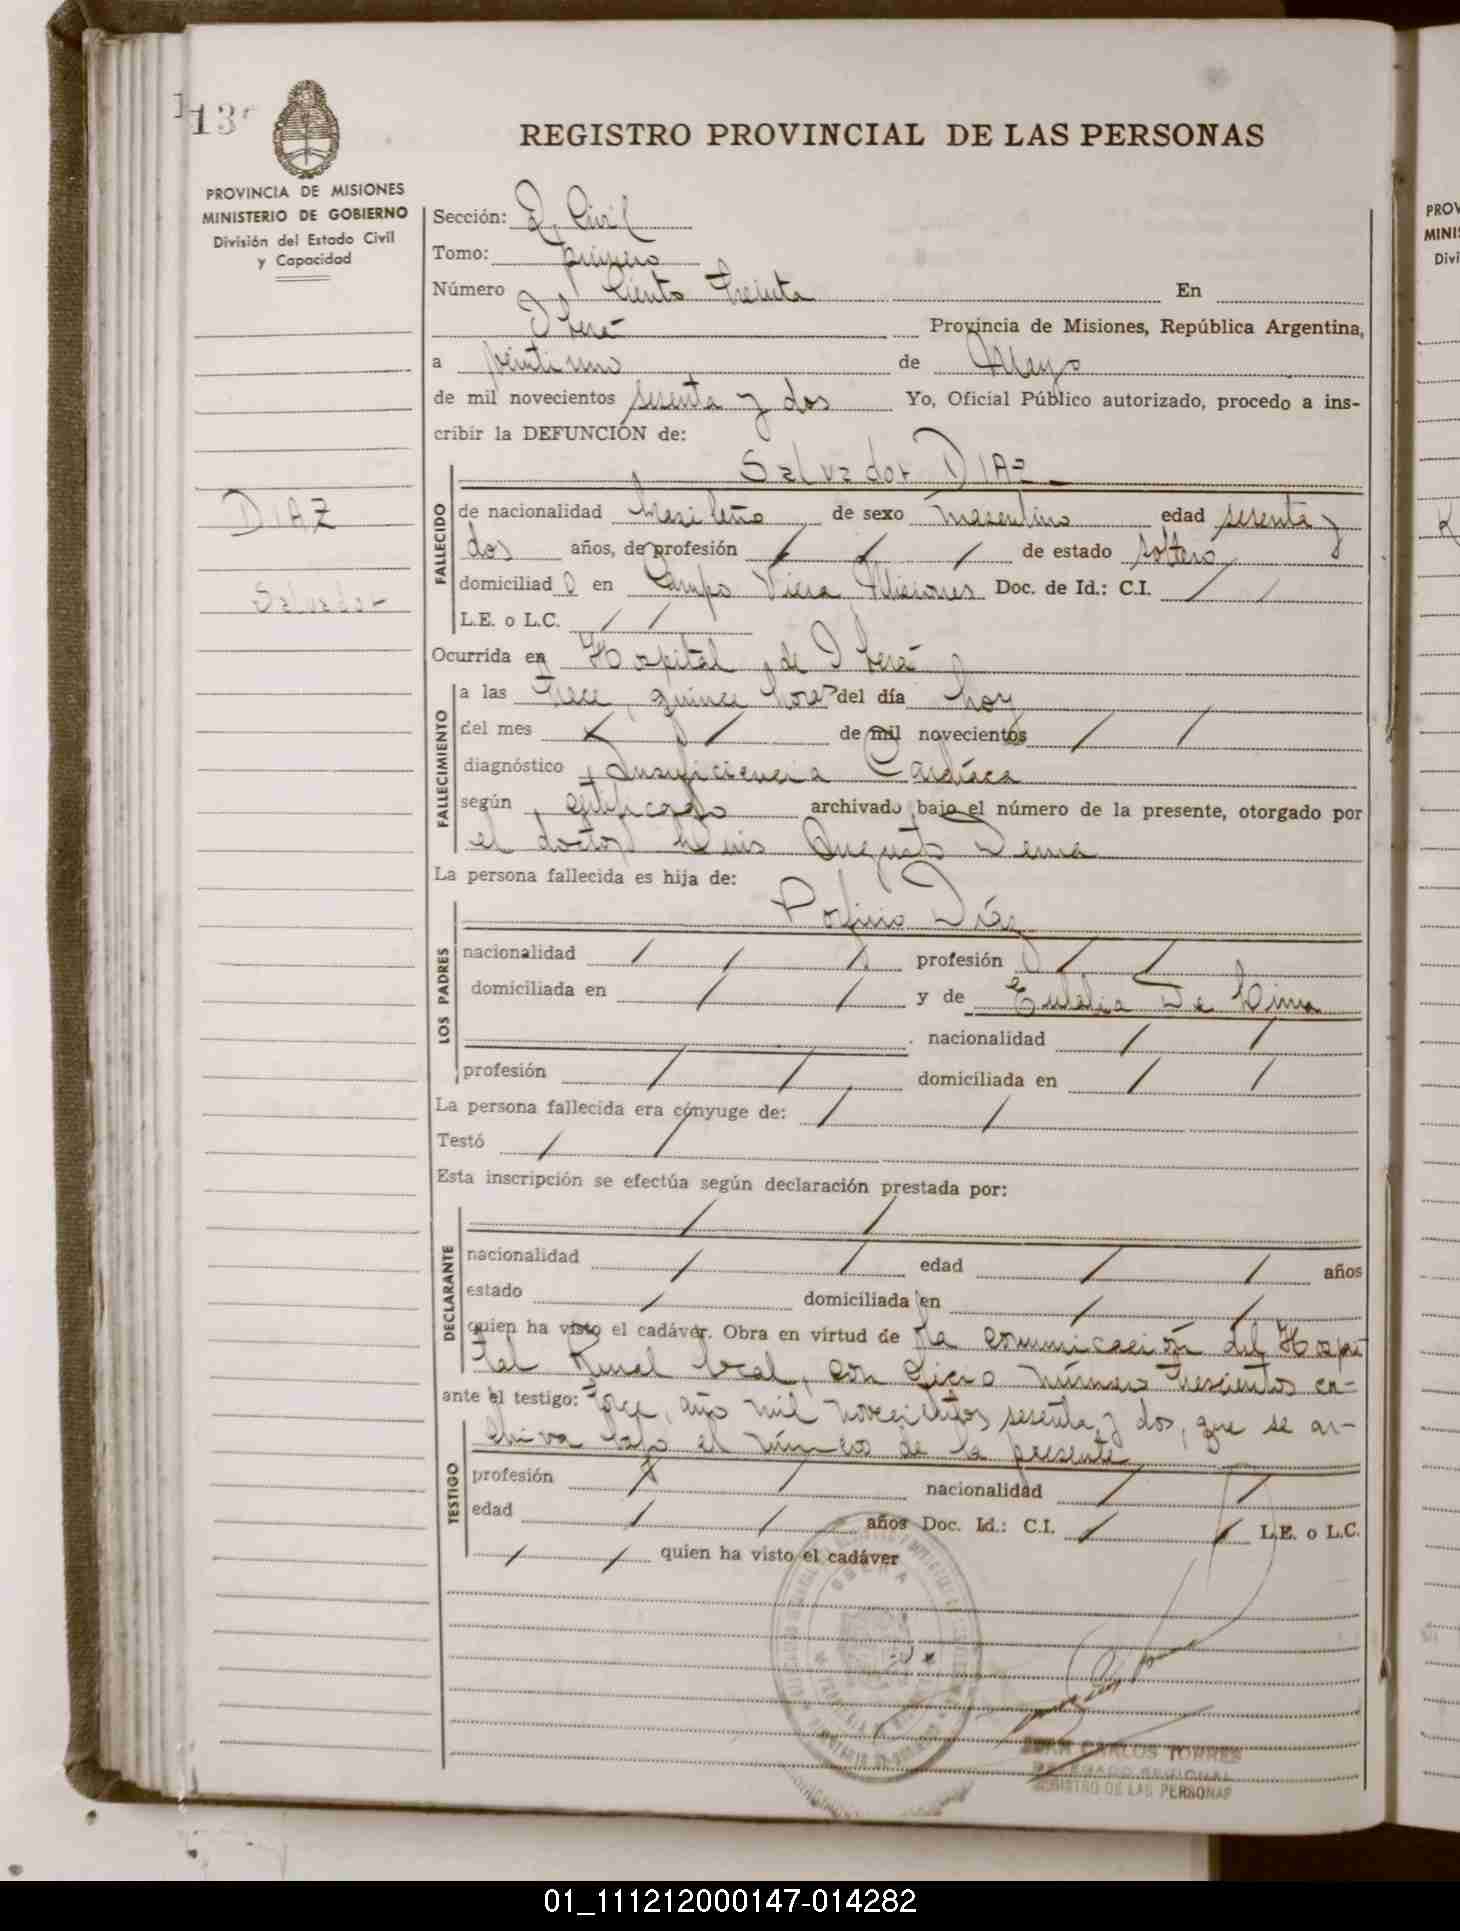 113
REGISTRO PROVINCIAL DE LAS PERSONAS
PROVINCIA DE MISIONES
MINISTERIO DE GOBIERNO
División del Estado Civil
y Capacidad
Sección: R. Civil
Tomo: primero
Número Ciento treinta En
Oberá Provincia de Misiones, República Argentina,
a veintiuno de Mayo
de mil novecientos sesenta y dos Yo, Oficial Público autorizado, procedo a ins-
cribir la DEFUNCIÓN de:
Salvador DIAZ
DIAZ
Salvador
FALLECIDO
de nacionalidad brasileño de sexo masculino edad sesenta y
dos años, de profesión / / / de estado soltero
domiciliad o en Campo Viera, Misiones Doc. de Id.: C.I. / /
L.E. o L.C. / /
Ocurrida en Hospital de Oberá
FALLECIMIENTO
a las trece, quince horas del día hoy
del mes / / de mil novecientos / /
diagnóstico Insuficiencia Cardíaca
según certificado archivado bajo el número de la presente, otorgado por
el doctor Luis Augusto
La persona fallecida es hija de:
LOS PADRES
Porfirio Díaz
nacionalidad / / / profesión / /
domiciliada en / / y de Eulalia De Lima
nacionalidad / /
profesión / / domiciliada en / /
La persona fallecida era cónyuge de: / /
Testó / /
Esta inscripción se efectúa según declaración prestada por:
/ /
DECLARANTE
nacionalidad / / edad / / años
estado / domiciliada en / /
quien ha visto el cadáver. Obra en virtud de la comunicación del Hospi-
tal Rural local, con número trescientos ca-
ante el testigo: torce, año mil novecientos sesenta y dos, que se ar-
chiva bajo el número de la presente
TESTIGO
profesión / / nacionalidad / /
edad / / años Doc. Id.: C.I. / / L.E. o L.C.
/ / quien ha visto el cadáver
OBERA
JUAN CARLOS TORRES
DELEGADO REGIONAL
REGISTRO DE LAS PERSONAS
PROV
MINIS
Divi
01_111212000147-014282